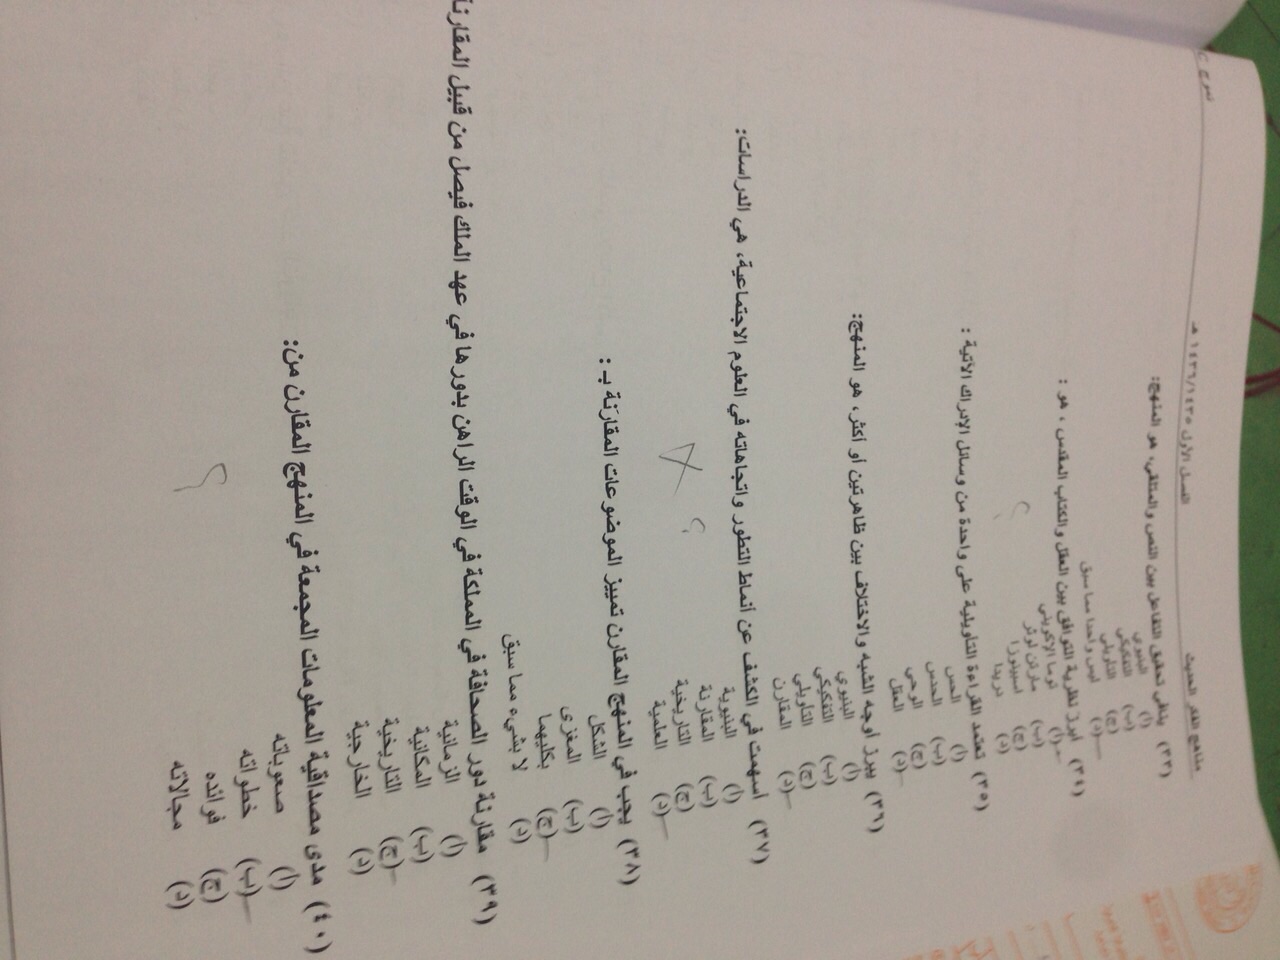 مناهج الفكر الحديث
الفصل الأول ١٤٣٥/١٤٣٦ هـ
نموذج
(٣٣) ينفي تحقيق التفاعل بين النص والمتلقي، هو المنهج:
(أ) البنيوي
(ب) التفكيكي
(ج) التأويلي
(د) ليس واحدا مما سبق
(٣٤) أبرز نظرية التوافق بين العقل والكتاب المقدس، هو :
(أ) توما الإكويني
(ب) مارتن لوثر
(ج) اسبينوزا
(د) دريدا
(٣٥) تعتمد القراءة التأويلية على واحدة من وسائل الإدراك الآتية :
(أ) الحس
(ب) الحدس
(ج) الوحي
(د) العقل
(٣٦) يبرز أوجه الشبه والاختلاف بين ظاهرتين أو أكثر، هو المنهج:
(أ) البنيوي
(ب) التفكيكي
(ج) التأويلي
(د) المقارن
(٣٧) أسهمت في الكشف عن أنماط التطور واتجاهاته في العلوم الاجتماعية، هي الدراسات:
(أ) البنيوية
(ب) المقارنة
(ج) التاريخية
(د) العلمية
؟
(٣٨) يجب في المنهج المقارن تمييز الموضوعات المقارَنة بـ :
(أ) الشكل
(ب) المغزى
(ج) بكليهما
(د) لا بشيء مما سبق
(٣٩) مقارنة دور الصحافة في المملكة في الوقت الراهن بدورها في عهد الملك فيصل من قبيل المقارنة
(أ) الزمانية
(ب) المكانية
(ج) التاريخية
(د) الخارجية
(٤٠) مدى مصداقية المعلومات المجمعة في المنهج المقارن من:
(أ) صعوباته
(ب) خطواته
(ج) فوائده
(د) مجالاته
؟